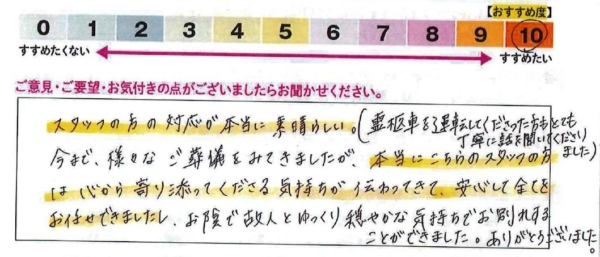 【おすすめ度】
0 1 2 3 4 5 6 7 8 9 10
すすめたくない すすめたい
ご意見・ご要望・お気付きの点がございましたらお聞かせください。
スタッフの方の対応が本当に素晴らしい。(霊柩車を運転してくださった方もとても
丁寧に話を聞いてくださり
ました)
今まで、様々なご葬儀をみてきましたが、本当にこちらのスタッフの方
は心から寄り添ってくださる気持ちが伝わってきて、安心して全てを
お任せできましたし、お陰で故人とゆっくり穏やかな気持ちでお別れする
ことができました。ありがとうございました。